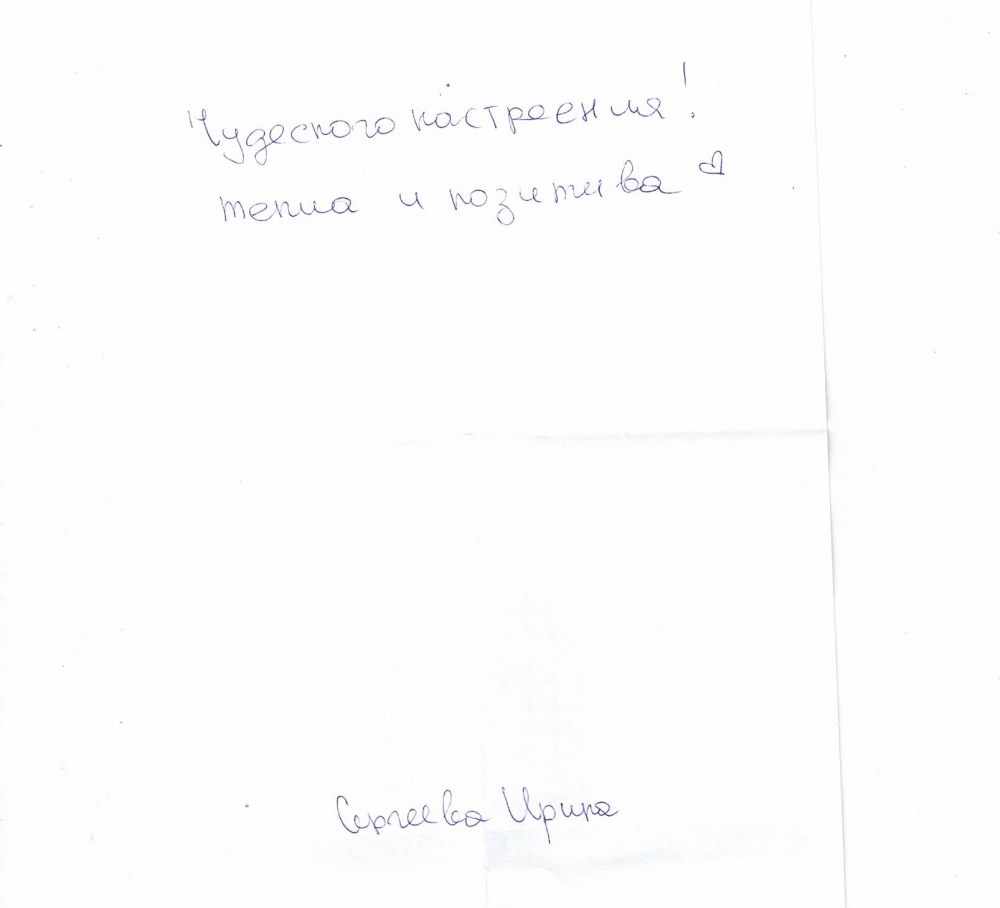 Чудесного настроения!
тепла и позитива ♡
Сергеева Ирина